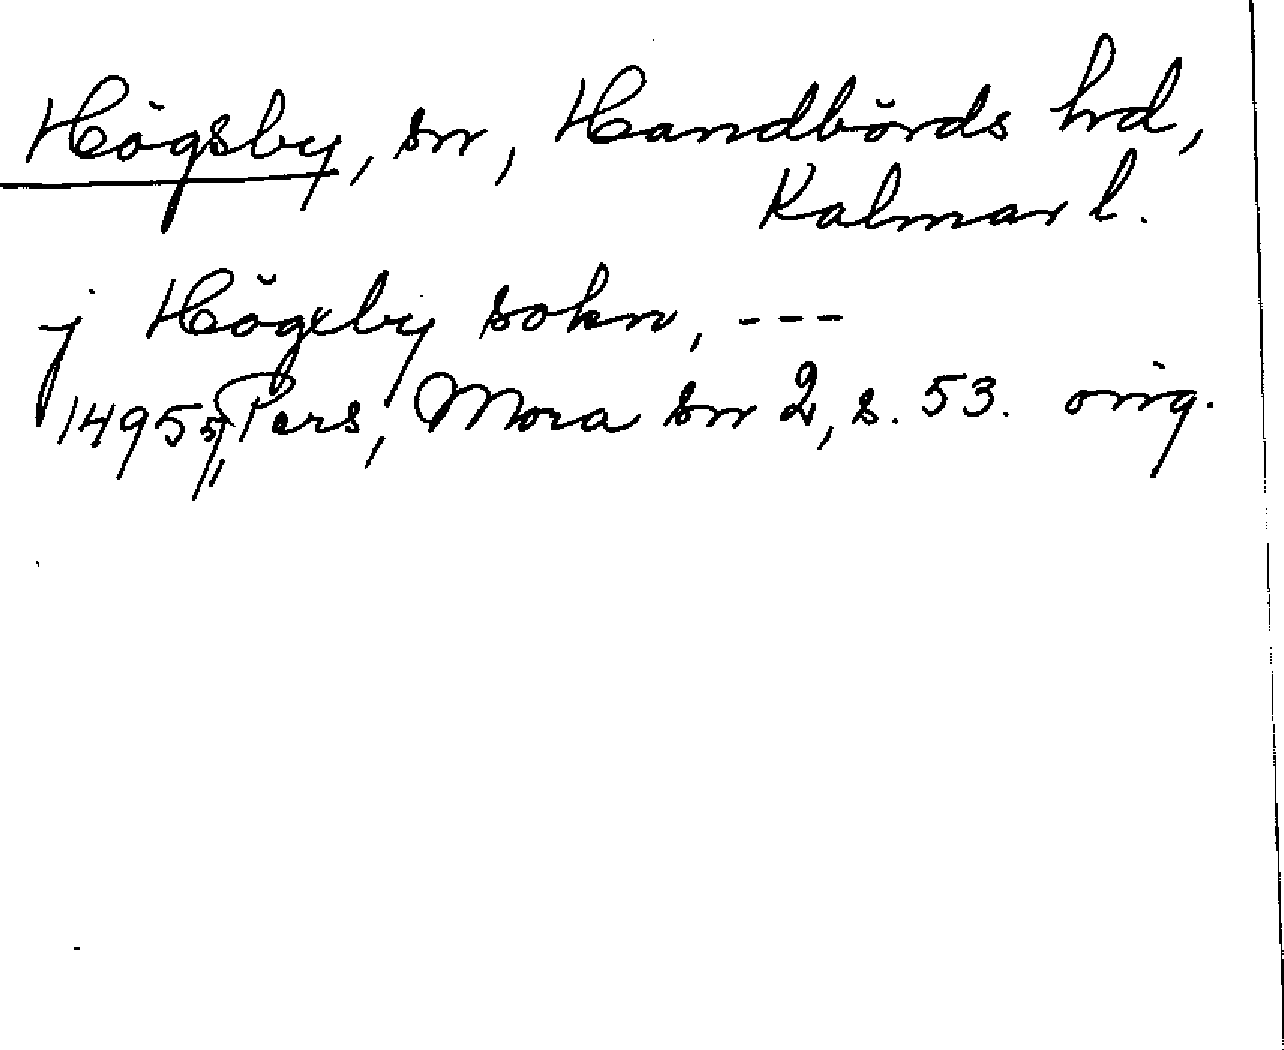 Högsby, sn, Handbörds hd,
Kalmar l.
j Högxby sokn, ---
1495 5/11 Pers, Mora sn 2, s. 53. orig.